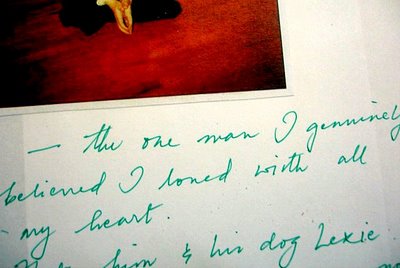 — the one man I genuinely
believed I loved with all
my heart.
him & his dog Lexie